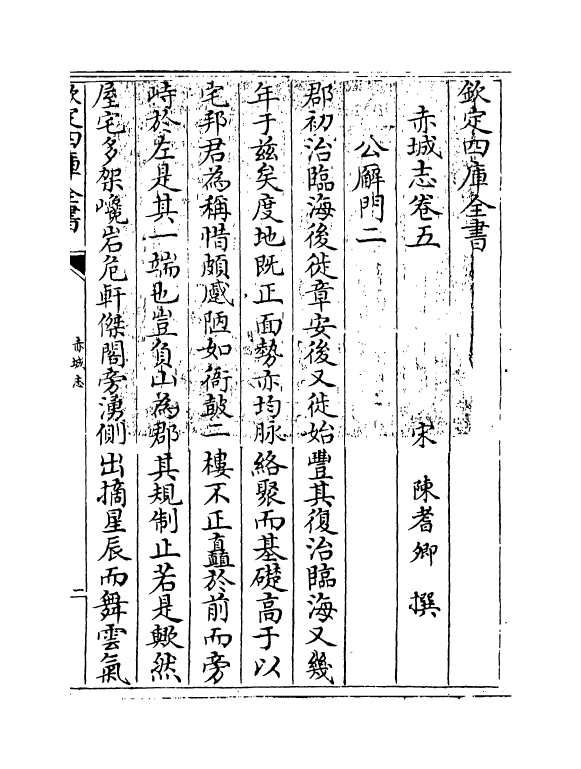 欽定四庫全書
赤城志卷五
宋 陳耆卿 撰
公廨門二
郡初治臨海後徙章安後又徙始豐其復治臨海又幾
年于兹矣度地既正面勢亦均脉絡聚而基礎高于以
宅邦君為稱惜頗蹙陋如衙鼓二樓不正矗於前而旁
峙於左是其一端也豈負山為郡其規制止若是歟然
屋宅多架巉岩危軒傑閣旁湧側出摘星辰而舞雲氣
欽定四庫全書
赤城志
二